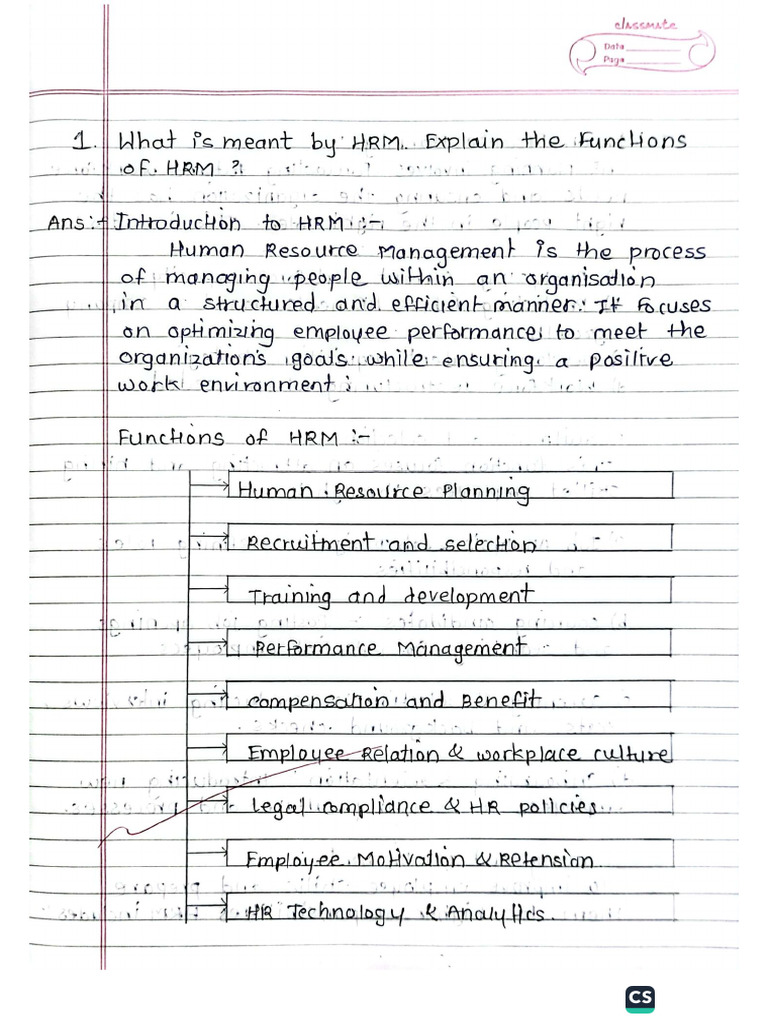 classmate
Date
Page
1. What is meant by HRM. Explain the Functions
of HRM ?
Ans :- Introduction to HRM :-
Human Resource Management is the process
of managing people within an organisation
in a structured and efficient manner. It focuses
on optimizing employee performance to meet the
organization's goals while ensuring a positive
work environment.
Functions of HRM :-
Human Resource Planning
Recruitment and selection
Training and development
Performance Management
Compensation and Benefit
Employee Relation & workplace culture
Legal compliance & HR policies
Employee Motivation & Retension
HR Technology & Analytics.
CS